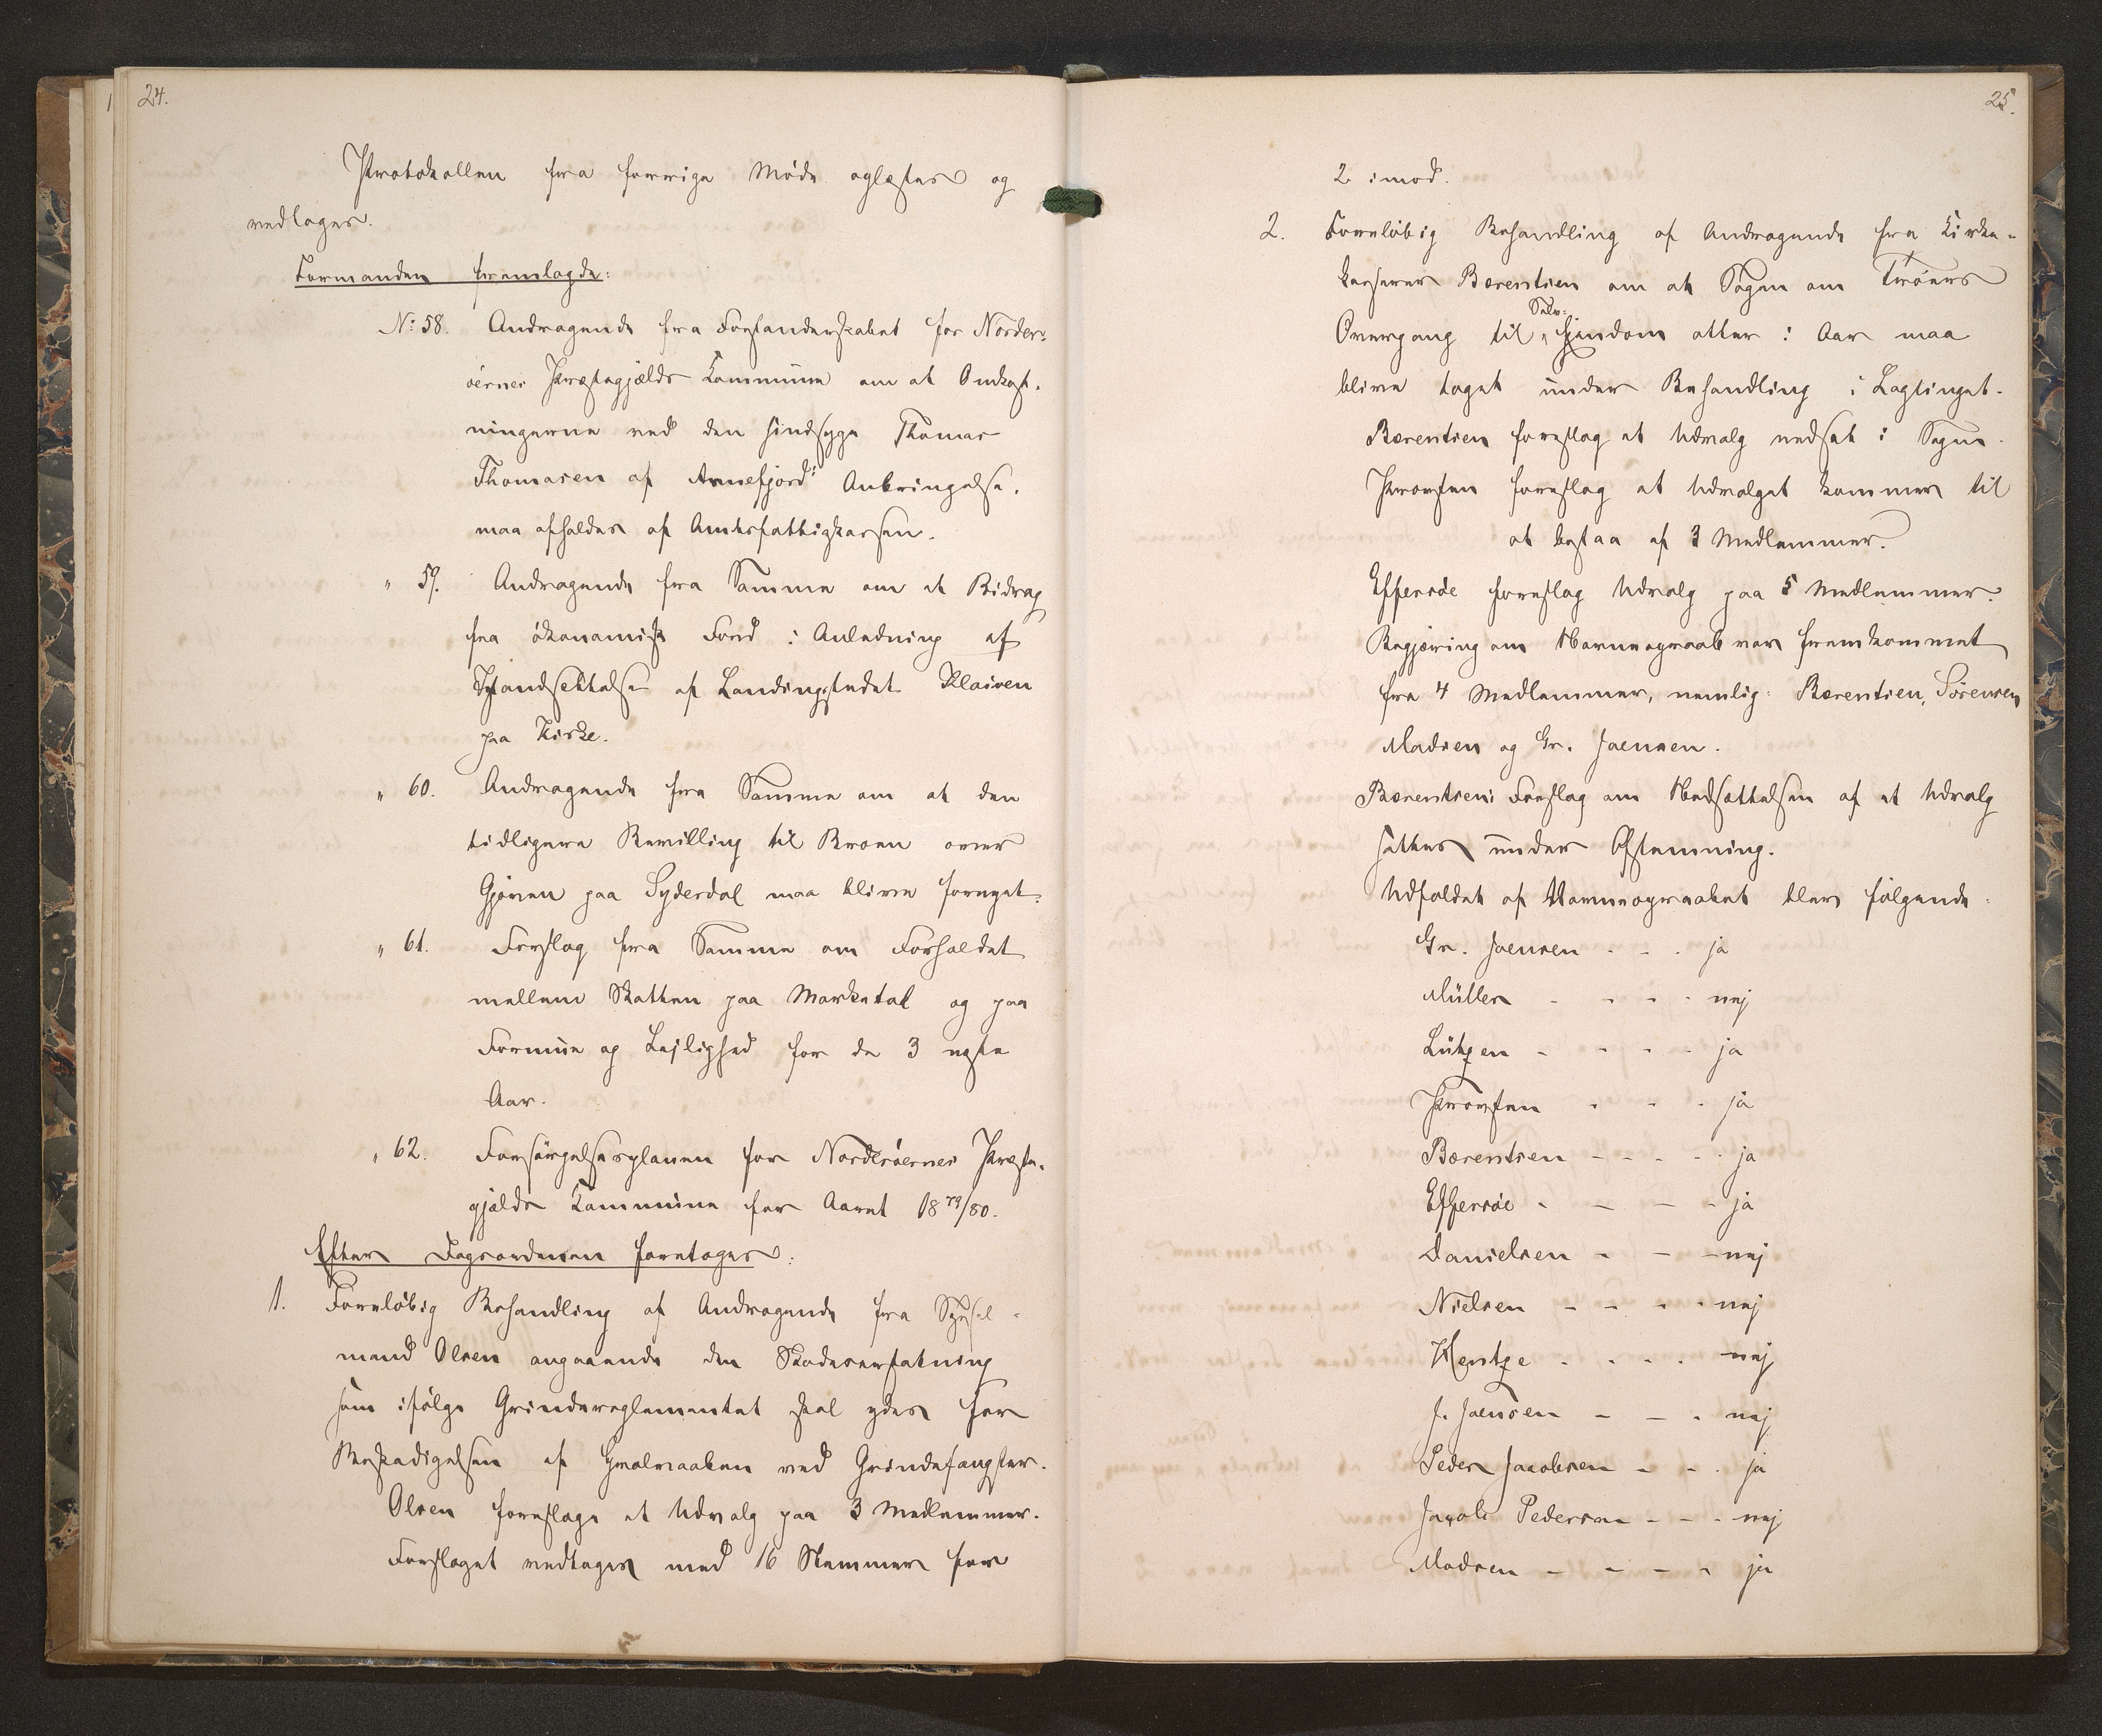 24.
Protokollen fra forrige Møde oplæstes og
vedtoges.
Formanden fremlagde:
No: 58. Andragende fra Forstanderskabet for Norder-
øernes Præstegjælds Kommune om at Omkost-
ningerne ved den sindssyge Thomas
Thomasen af Arnefjords Anbringelse.
maa afholdes af Amtsfattigkassen.
" 59. Andragende fra Samme om et Bidrag
fra økonomisk Fond i Anledning af
Istandsettelse af Landingsstedet Klaiven
paa Kirke.
" 60. Andragende fra Samme om at den
tidligere Bevilling til Broen over
Gjøven paa Syderdal maa blive fornyet.
" 61. Forslag fra Samme om Forholdet
mellem Skatten paa Marketal og paa
Formue og Lejlighed for de 3 nyste
Aar.
" 62. Forsørgelsesplanen for Norderøernes Præste-
gjælds Kommune for Aaret 1879/80.
Efter Dagsordenen foretoges:
1. Foreløbig Behandling af Andragende fra Syssel-
mand Olsen angaaende den Skadeserstatning
som ifølge Grindereglementet skal ydes for
Beskadigelsen af Hvalvaaben ved Grindefangster.
Olsen foreslog et Udvalg paa 3 Medlemmer.
Forslaget vedtoges med 16 Stemmer for
25.
2 imod.
2. Foreløbig Behandling af Andragende fra Kirke-
kasserer Bærentsen om at Sagen om Færøers
Selv-
Overgang til Ejendom atter i Aar maa
blive taget under Behandling i Lagtinget.
Bærentsen foreslog et Udvalg nedsat i Sagen.
Provsten foreslog at Udvalget kommer til
at bestaa af 3 Medlemmer.
Effersøe foreslog Udvalg paa 5 Medlemmer.
Begjæring om Navneopraab var fremkommet
fra 4 Medlemmer, nemlig: Bærentsen, Sørensen,
Madsen og Gr. Joensen.
Bærentsens Forslag om Nedsættelsen af et Udvalg
sattes under Afstemning.
Udfaldet af Navneopraabet blev følgende:
Gr. Joensen - - - ja
Müller - - - - nej
Lützen - - - - ja
Provsten - - - ja
Bærentsen - - - - - ja
Effersøe - - - - ja
Danielsen - - - nej
Nielsen - - - - nej
Hentze - - - - nej
J. Joensen - - - nej
Peder Jacobsen - - - ja
Jacob Pedersen - - - nej
Madsen - - - - ja